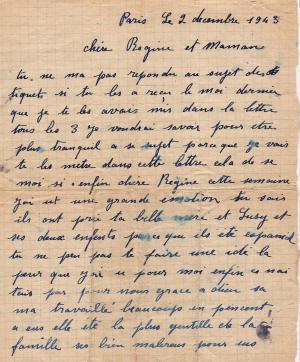 Paris Le 2 decembre 1943
chère Regine et Maman
tu ne ma pas repondu au sujet des
tiquets si tu les a recu le moi dernier
que je te les avais mis dans la lettre
tous les 3 je voudrai savoir pour etre
plus tranquil a se sujet parce que je vais
te les metre dans cette lettre cela de se
moi si enfin chère Regine cette semaine
jai ut une grande emotion tu sais
ils ont pris la belle mere et Suzy et
ses deux enfants parce que ils été espaniol
tu ne peu pas te faire une idé la
peur que jai u pour moi enfin ce nai
tais pas pour nous grace a dieu sa
ma travaillé beaucoup en pencent
a eus elle été la plus gentille de la
famille ses bien malereus pour eus